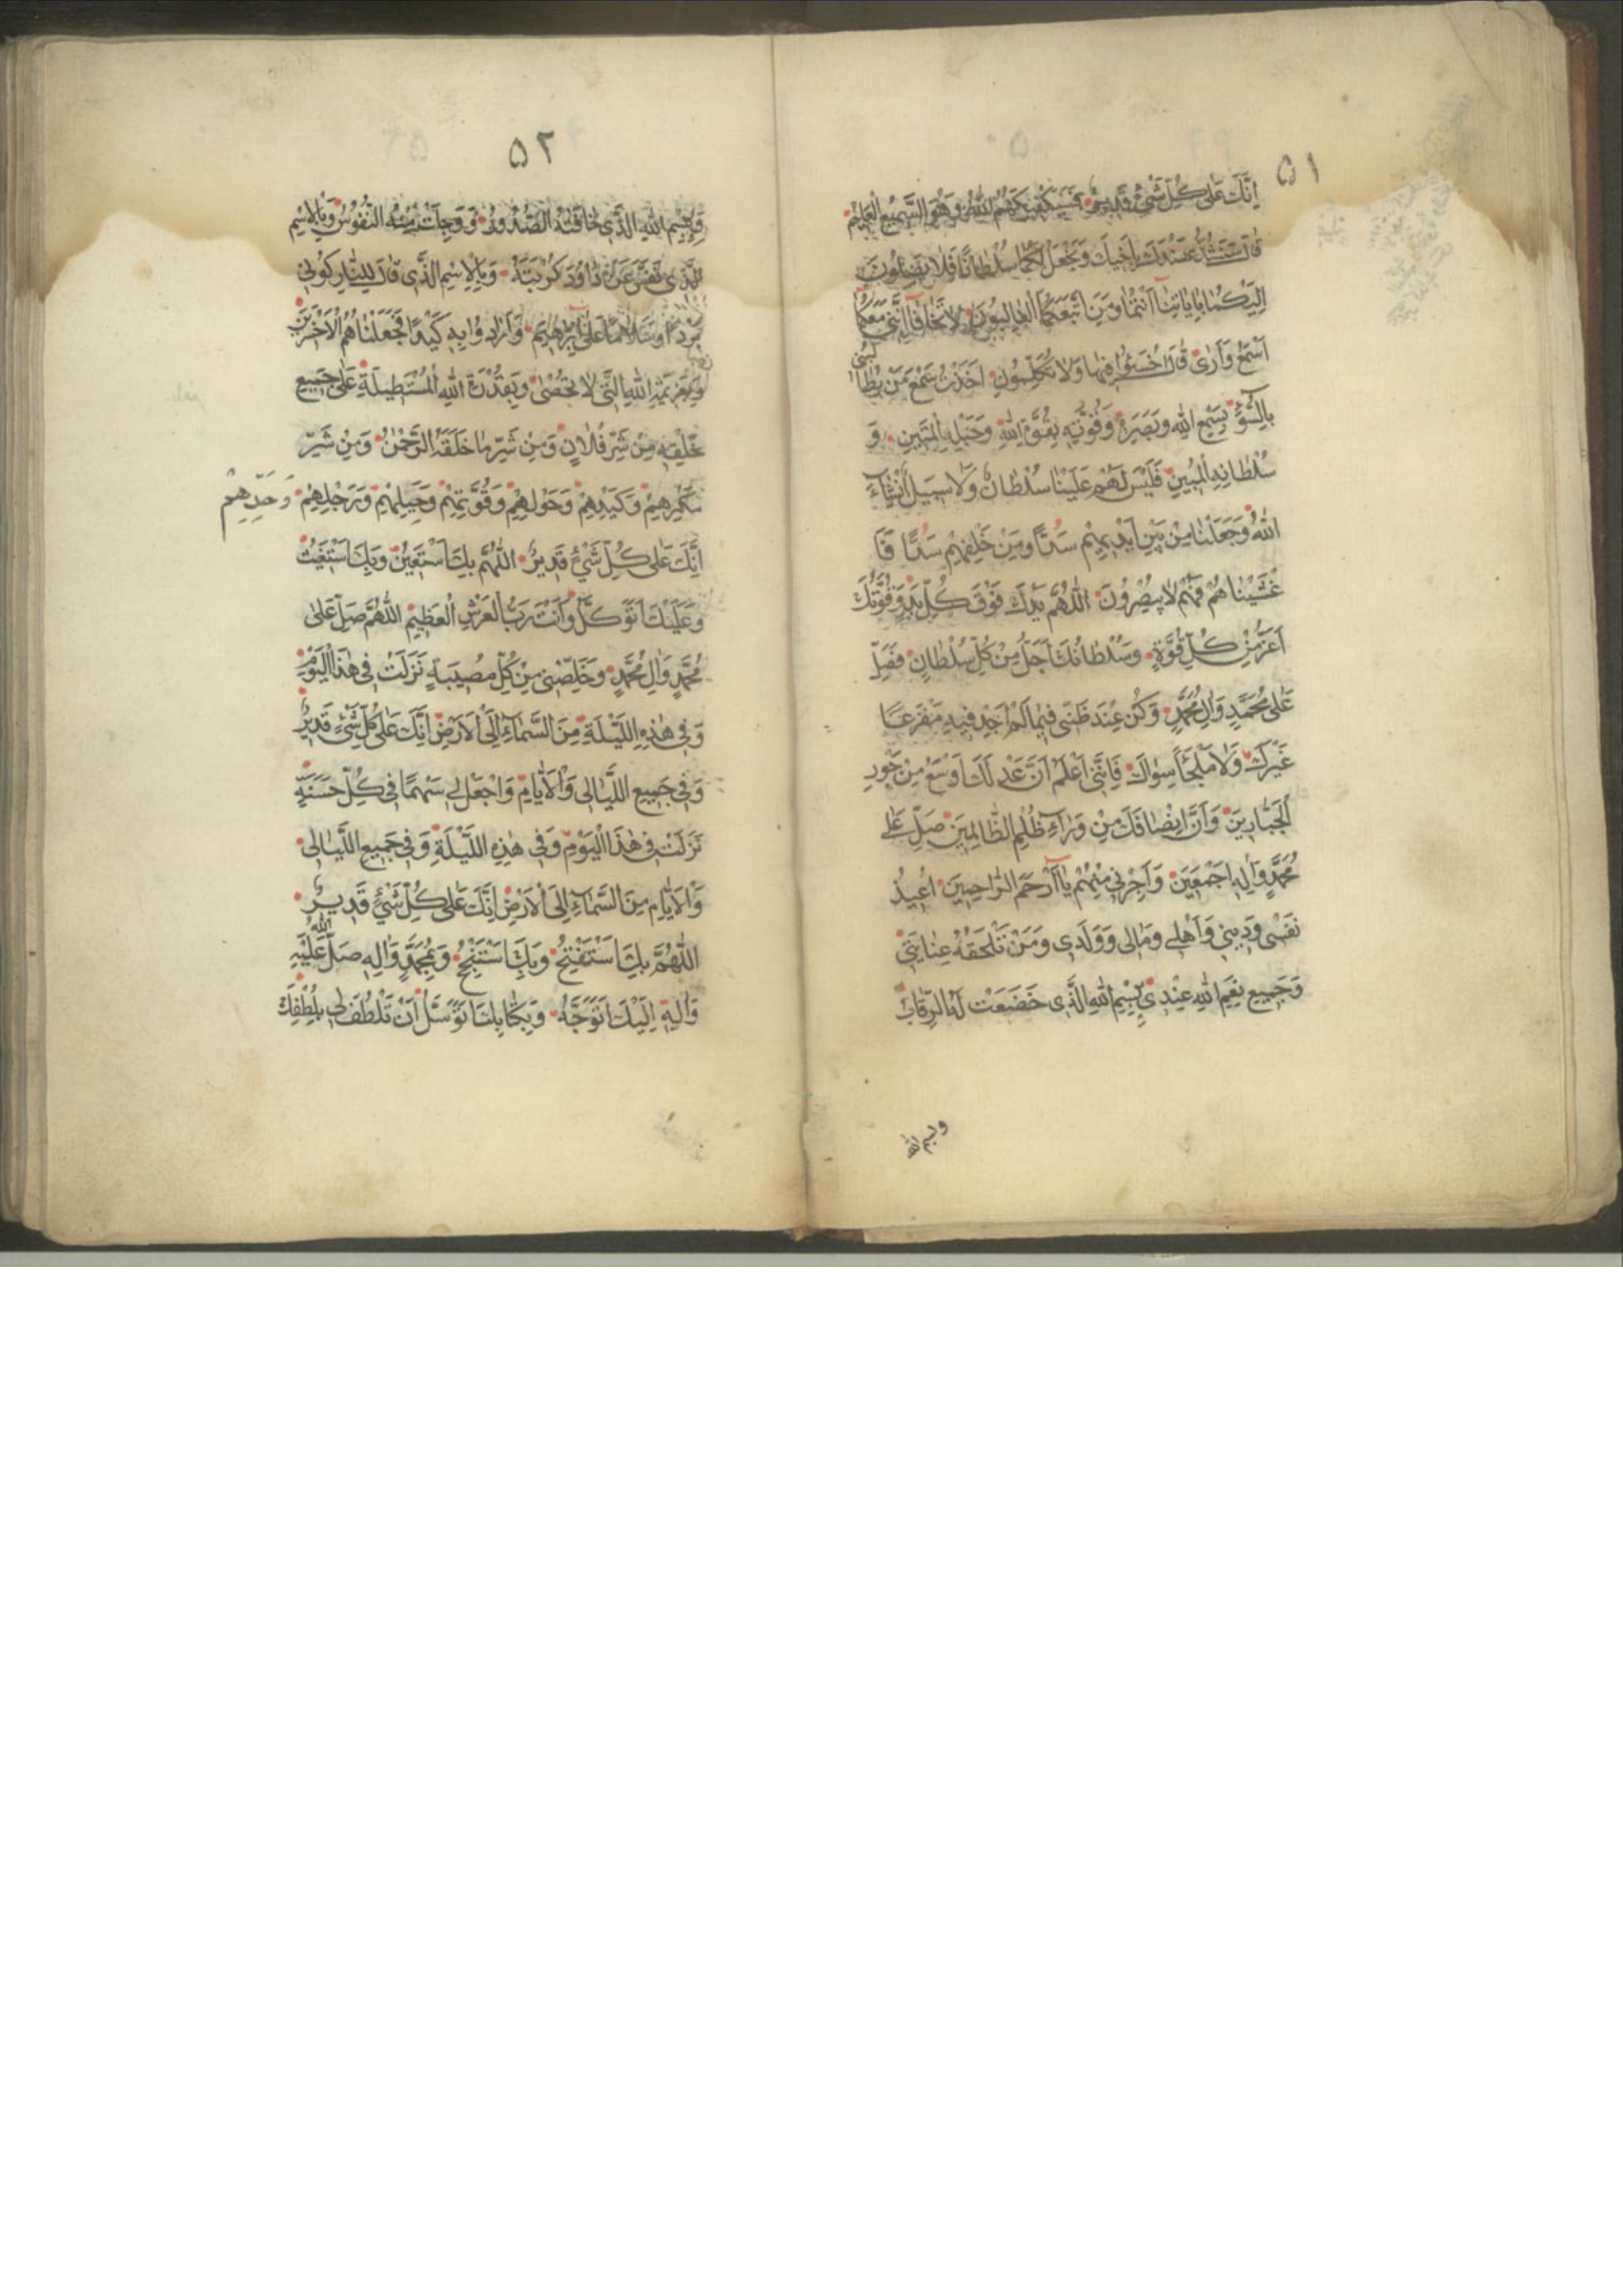 ٥١
اِنَّكَ عَلٰى كُلِّ شَيْءٍ قَدِيرٌ فَسَيَكْفِيكَهُمُ اللّٰهُ وَهُوَ السَّمِيعُ الْعَلِيمُ
قَالَ سَنَشُدُّ عَضُدَكَ بِاَخِيكَ وَنَجْعَلُ لَكُمَا سُلْطَانًا فَلَا يَصِلُونَ
اِلَيْكُمَا بِاٰيَاتِنَا اَنْتُمَا وَمَنِ اتَّبَعَكُمَا الْغَالِبُونَ لَا تَخَافَا اِنَّنِي مَعَكُمَا
اَسْمَعُ وَاَرٰى قَالَ اخْسَئُوا فِيهَا وَلَا تُكَلِّمُونِ اَخَذْتُ سَمْعَ مَنْ يُطَالِبُنِي
بِالسُّوءِ بِسَمْعِ اللّٰهِ وَبَصَرَهُ وَقُوَّتِهِ بِقُوَّةِ اللّٰهِ وَحَبْلِهِ الْمَتِينِ وَ
سُلْطَانِهِ الْمُبِينِ فَلَيْسَ لَهُمْ عَلَيْنَا سُلْطَانٌ وَلَا سَبِيلٌ اِنْشَاءَ
اللّٰهُ وَجَعَلْنَا مِنْ بَيْنِ اَيْدِيهِمْ سَدًّا وَمِنْ خَلْفِهِمْ سَدًّا فَاَ
غْشَيْنَاهُمْ فَهُمْ لَا يُبْصِرُونَ اللّٰهُمَّ يَدُكَ فَوْقَ كُلِّ يَدٍ وَقُوَّتُكَ
اَعَزُّ مِنْ كُلِّ قُوَّةٍ وَسُلْطَانُكَ اَجَلُّ مِنْ كُلِّ سُلْطَانٍ فَصَلِّ
عَلٰى مُحَمَّدٍ وَاٰلِ مُحَمَّدٍ وَكُنْ عِنْدَ ظَنِّي فِيمَا لَمْ اَجِدْ فِيهِ مَفْزَعًا
غَيْرَكَ وَلَا مَلْجَاً سِوَاكَ فَاِنَّنِي اَعْلَمُ اَنَّ عَدْلَكَ اَوْسَعُ مِنْ جَوْرِ
الْجَبَّارِينَ وَاَنَّ اِنْصَافَكَ مِنْ وَرَاءِ ظُلْمِ الظَّالِمِينَ صَلِّ عَلٰى
مُحَمَّدٍ وَاٰلِهِ اَجْمَعِينَ وَاَجِرْنِي مِنْهُمْ يَا اَرْحَمَ الرَّاحِمِينَ اُعِيذُ
نَفْسِي وَدِينِي وَاَهْلِي وَمَالِي وَوَلَدِي وَمَنْ تَلْحَقُهُ عِنَايَتِي
وَجَمِيعَ نِعَمِ اللّٰهِ عِنْدِي بِبِسْمِ اللّٰهِ الَّذِي خَضَعَتْ لَهُ الرِّقَابُ
وبسم الله
٥٢
وَبِسْمِ اللّٰهِ الَّذِي خَافَتْهُ الصُّدُورُ وَوَجِلَتْ مِنْهُ النُّفُوسُ وَبِالْاِسْمِ
الَّذِي نَفَّسَ عَنْ دَاوُدَ كُرْبَتَهُ وَبِالْاِسْمِ الَّذِي قَالَ لِلنَّارِ كُونِي
بَرْدًا وَسَلَامًا عَلٰى اِبْرٰهِيمَ وَاَرَادُوا بِهِ كَيْدًا فَجَعَلْنَاهُمُ الْاَخْسَرِينَ
وَبِعَزِيمَةِ اللّٰهِ الَّتِي لَا تُحْصٰى وَبِقُدْرَةِ اللّٰهِ الْمُسْتَطِيلَةِ عَلٰى جَمِيعِ
خَلْقِهِ مِنْ شَرِّ فُلَانٍ وَمِنْ شَرِّ مَا خَلَقَهُ الرَّحْمٰنُ وَمِنْ شَرِّ
مَكْرِهِمْ وَكَيْدِهِمْ وَحَوْلِهِمْ وَقُوَّتِهِمْ وَحِيلِهِمْ وَرَجْلِهِمْ وَحَدِّهِمْ
اِنَّكَ عَلٰى كُلِّ شَيْءٍ قَدِيرٌ اللّٰهُمَّ بِكَ اَسْتَعِينُ وَبِكَ اَسْتَغِيثُ
وَعَلَيْكَ اَتَوَكَّلُ وَاَنْتَ رَبُّ الْعَرْشِ الْعَظِيمِ اللّٰهُمَّ صَلِّ عَلٰى
مُحَمَّدٍ وَاٰلِ مُحَمَّدٍ وَخَلِّصْنِي مِنْ كُلِّ مُصِيبَةٍ نَزَلَتْ فِي هٰذَا الْيَوْمِ
وَفِي هٰذِهِ اللَّيْلَةِ مِنَ السَّمَاءِ اِلَى الْاَرْضِ اِنَّكَ عَلٰى كُلِّ شَيْءٍ قَدِيرٌ
وَفِي جَمِيعِ اللَّيَالِي وَالْاَيَّامِ وَاجْعَلْ لِي سَهْمًا فِي كُلِّ حَسَنَةٍ
نَزَلَتْ فِي هٰذَا الْيَوْمِ وَفِي هٰذِهِ اللَّيْلَةِ وَفِي جَمِيعِ اللَّيَالِي
وَالْاَيَّامِ مِنَ السَّمَاءِ اِلَى الْاَرْضِ اِنَّكَ عَلٰى كُلِّ شَيْءٍ قَدِيرٌ
اللّٰهُمَّ بِكَ اَسْتَفْتِحُ وَبِكَ اَسْتَنْجِحُ وَبِمُحَمَّدٍ وَاٰلِهِ صَلَّى اللّٰهُ عَلَيْهِ
وَاٰلِهِ اِلَيْكَ اَتَوَجَّهُ وَبِكِتَابِكَ اَتَوَسَّلُ اَنْ تَلْطُفَ لِي بِلُطْفِكَ